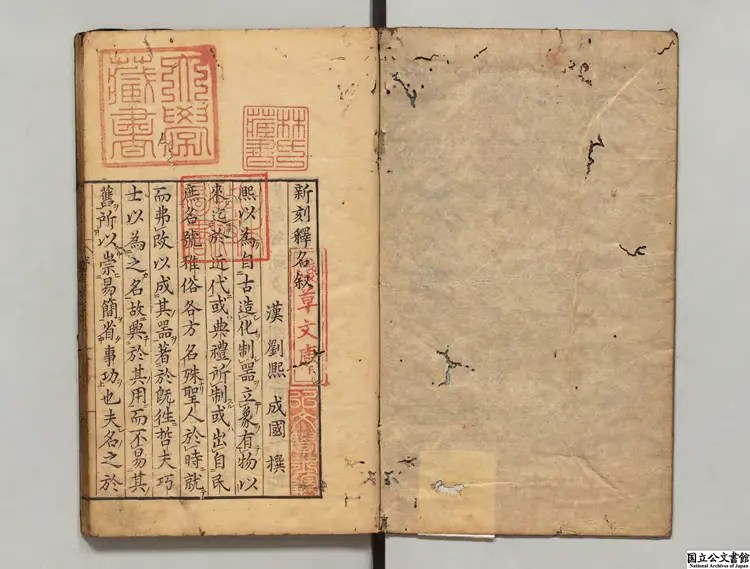 大學藏書
林氏藏書
新刻釋名叙
淺草文庫
漢 劉熙 成國 撰
熙以為自古造化制器立象有物以
來迄於近代或典禮所制或出自民
庶名號雅俗各方名殊聖人於時就
而弗改以成其器著於既往哲夫巧
士以為之名故興於其用而不易其
舊所以崇易簡省事功也夫名之於
国立公文書館
National Archives of Japan